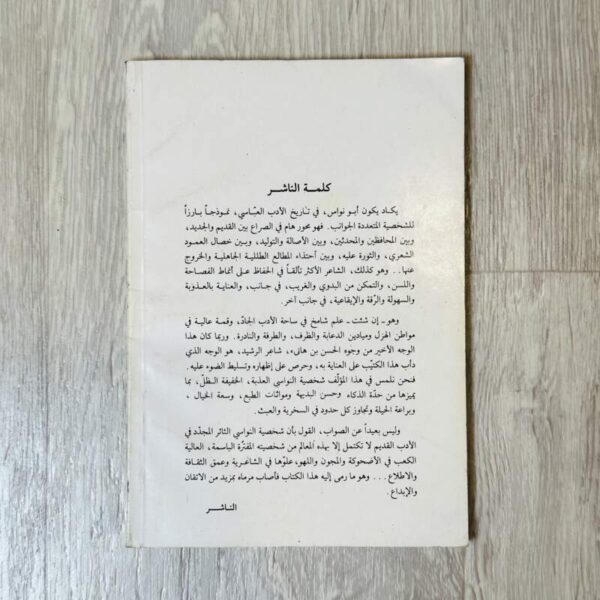 كلمة الناشر
يكاد يكون أبو نواس، في تاريخ الأدب العبّاسي، نموذجاً بارزاً
للشخصية المتعددة الجوانب. فهو محور هام في الصراع بين القديم والجديد،
وبين المحافظين والمحدثين، وبين الأصالة والتوليد، وبين خصال العمود
الشعري، والثورة عليه، وبين احتذاء المطالع الطللية الجاهلية والخروج
عنها.. وهو كذلك، الشاعر الأكثر تألقاً في الحفاظ على أنماط الفصاحة
واللسن، والتمكن من البدوي والغريب، في جانب، والعناية بالعذوبة
والسهولة والرقّة والإيقاعية، في جانب آخر.
وهو ــ إن شئت ــ علم شامخ في ساحة الأدب الجادّ، وقمة عالية في
مواطن الهزل وميادين الدعابة والظرف، والطرفة والنادرة. وربما كان هذا
الوجه الأخير من وجوه الحسن بن هانىء، شاعر الرشيد، هو الوجه الذي
دأب هذا الكتيّب على العناية به، وحرص على إظهاره وتسليط الضوء عليه.
فنحن نلمس في هذا المؤلّف شخصية النواسي العذبة، الخفيفة الظلّ، بما
يميزها من حدّة الذكاء وحسن البديهة ومواتاة الطبع، وسعة الخيال،
وبراعة الحيلة وتجاوز كل حدود في السخرية والعبث.
وليس بعيداً عن الصواب، القول بأن شخصية النواسي الثائر المجدّد في
الأدب القديم لا تكتمل إلا بهذه المعالم من شخصيته المفترّة الباسمة، العالية
الكعب في الأضحوكة والمجون واللهو، علوّها في الشاعرية وعمق الثقافة
والاطلاع... وهو ما رمى إليه هذا الكتاب فأصاب مرماه بمزيد من الاتقان
والإبداع.
الناشر